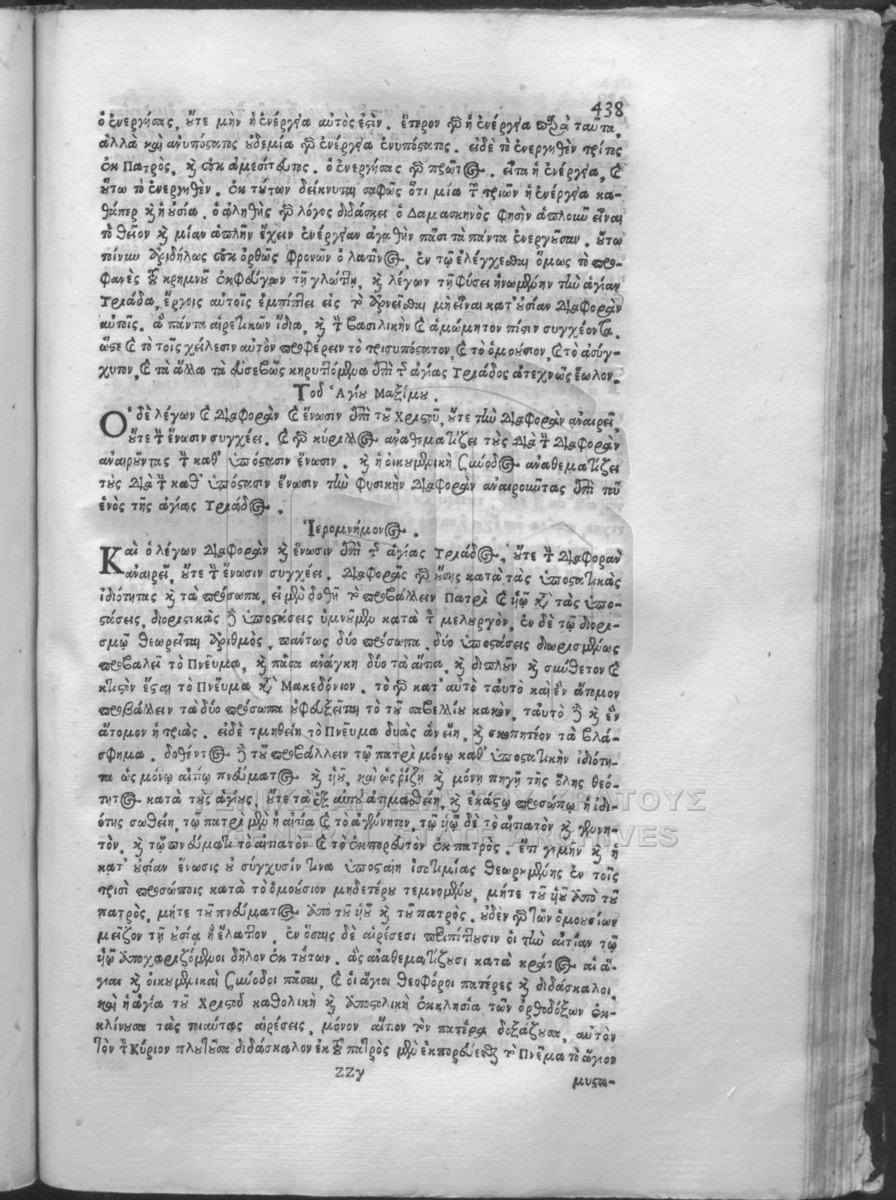 438
ὁ ἐνεργήσας, οὔτε μὴν ἡ ἐνέργεια αὐτός ἐστιν. ἕτερον γὰρ ἡ ἐνέργεια παρὰ ταῦτα,
ἀλλὰ καὶ ἀνυπόστατος οὐδεμία γὰρ ἐνέργεια ἐνυπόστατος. εἰ δὲ τὸ ἐνεργηθὲν τρίτως
ἐκ Πατρὸς, καὶ οὐκ ἀμεσιτεύτως. ὁ ἐνεργήσας γὰρ πρῶτος. εἶτα ἡ ἐνέργεια, καὶ
οὕτω τὸ ἐνεργηθὲν. ἐκ τούτων δείκνυται σαφῶς ὅτι μία τῶν τριῶν ἡ ἐνέργεια κα-
θάπερ καὶ ἡ οὐσία. ὁ ἀληθὴς γὰρ λόγος διδάσκει ὁ Δαμασκηνὸς φησὶν ἁπλοῦν εἶναι
τὸ θεῖον καὶ μίαν ἁπλῆν ἔχειν ἐνέργειαν ἀγαθὴν πᾶσι τὰ πάντα ἐνεργοῦσαν. οὕτω
τοίνυν ἀριδήλως οὐκ ὀρθῶς φρονῶν ὁ λατῖνος, ἐν τῷ ἐλέγχεσθαι ὅμως τὸ προ-
φανὲς τοῦ κρημνοῦ ἐκφεύγων τῇ γλώττῃ, καὶ λέγων τῇ φύσει ἡνωμένην τὴν ἁγίαν
Τριάδα, ἔργοις αὐτοῖς ἐμπίπτει εἰς τὸ ἀρνεῖσθαι μὴ εἶναι κατ' οὐσίαν διαφορὰν
αὐτοῖς. ἃ πάντα αἱρετικῶν ἴδια, καὶ τὴν βασιλικὴν καὶ ἀμώμητον πίστιν συγχέοντα.
ὥστε καὶ τὸ τοῖς χείλεσιν αὐτὸν προφέρειν τὸ τρισυπόστατον, καὶ τὸ ὁμούσιον, καὶ τὸ ἀσύγ-
χυτον, καὶ τὰ ἄλλα τὰ εὐσεβῶς κηρυττόμενα ἐπὶ τῆς ἁγίας Τριάδος ἀτεχνῶς ἕωλον.
Τοῦ Ἁγίου Μαξίμου.
Ὁ δὲ λέγων καὶ διαφορὰν καὶ ἕνωσιν ἐπὶ τοῦ Χριστοῦ, οὔτε τὴν διαφορὰν ἀναιρεῖ
οὔτε τὴν ἕνωσιν συγχέει. καὶ γὰρ κύριλλος ἀναθεματίζει τοὺς διὰ τὴν διαφορὰν
ἀναιροῦντας τὴν καθ' ὑπόστασιν ἕνωσιν. καὶ ἡ οἰκουμενικὴ σύνοδος ἀναθεματίζει
τοὺς διὰ τὴν καθ' ὑπόστασιν ἕνωσιν τὴν φυσικὴν διαφορὰν ἀναιροῦντας ἐπὶ τοῦ
ἑνὸς τῆς ἁγίας Τριάδος.
Ἱερομνήμονος.
Καὶ ὁ λέγων διαφορὰν καὶ ἕνωσιν ἐπὶ τῆς ἁγίας Τριάδος, οὔτε τὴν διαφορὰν
ἀναιρεῖ, οὔτε τὴν ἕνωσιν συγχέει. διαφορᾶς γὰρ οὔσης κατὰ τὰς ὑποστατικὰς
ἰδιότητας καὶ τὰ πρόσωπα, εἰ μὲν δοθῇ τὸ προβάλλειν Πατρὶ καὶ υἱῷ κατὰ τὰς ὑπο-
στάσεις, διοριστικὰς δὲ ὑποστάσεις ὑμνοῦμεν κατὰ τὸν μελουργὸν, ἐν δὲ τῷ διορι-
σμῷ θεωρεῖται ἀριθμὸς, πάντως δύο πρόσωπα. δύο ὑποστάσεις διωρισμένως
προβαλεῖ τὸ Πνεῦμα, καὶ πᾶσα ἀνάγκη δύο τὰ αἴτια, καὶ διπλοῦν καὶ σύνθετον καὶ
κτιστὸν ἔσται τὸ Πνεῦμα κατὰ Μακεδόνιον. τὸ γὰρ κατ' αὐτὸ ταὐτὸ καὶ ἓν ἄτομον
προβάλλειν τὰ δύο πρόσωπα ἐφέλξεται τὸ τοῦ σαβελλίου κακὸν, ταὐτὸ γὰρ καὶ ἓν
ἄτομον ἡ τριὰς. εἰ δὲ τμηθείη τὸ Πνεῦμα δυὰς ἂν εἴη, καὶ σκοπητέον τὰ βλά-
σφημα. δοθέντος δὲ τοῦ προβάλλειν τῷ πατρὶ μόνῳ καθ' ὑποστατικὴν ἰδιότη-
τα ὡς μόνῳ αἰτίῳ πνεύματος καὶ υἱοῦ, καὶ ὡς ῥίζῃ καὶ μόνῃ πηγῇ τῆς ὅλης θεό-
τητος κατὰ τοὺς ἁγίους, οὔτε τὰ ἐξ αὐτοῦ τμηθείη, καὶ ἑκάστῳ προσώπῳ ἡ ἰδι-
ότης σωθείη, τῷ πατρὶ μὲν ἡ αἰτία καὶ τὸ ἀγέννητον, τῷ υἱῷ δὲ τὸ αἰτιατὸν καὶ γεννη-
τὸν, καὶ τῷ πνεύματι τὸ αἰτιατὸν καὶ τὸ ἐκπορευτὸν ἐκ πατρὸς. ἔτι γε μὴν καὶ ἡ
κατ' οὐσίαν ἕνωσις οὐ σύγχυσίν τινα ὑποσταίη ἰσοτιμίας θεωρουμένης ἐν τοῖς
τρισὶ προσώποις κατὰ τὸ ὁμούσιον μηδετέρου τεμνομένου, μήτε τοῦ υἱοῦ ἀπὸ τοῦ
πατρὸς, μήτε τοῦ πνεύματος ἀπὸ τοῦ υἱοῦ καὶ τοῦ πατρὸς. οὐδὲν γὰρ τῶν ὁμουσίων
μεῖζον τῇ οὐσίᾳ ἢ ἔλαττον. ἐν ὅσαις δὲ αἱρέσεσι περιπίπτουσιν οἱ τὴν αἰτίαν τῷ
υἱῷ ἀποχαριζόμενοι δῆλον ἐκ τούτων. ἃς ἀναθεματίζουσι κατὰ κράτος αἱ ἅ-
γιαι καὶ οἰκουμενικαὶ σύνοδοι πᾶσαι, καὶ οἱ ἅγιοι θεοφόροι πατέρες καὶ διδάσκαλοι,
καὶ ἡ ἁγία τοῦ Χριστοῦ καθολικὴ καὶ ἀποστολικὴ ἐκκλησία τῶν ὀρθοδόξων ἐκ-
κλίνουσα τὰς τοιαύτας αἱρέσεις, μόνον αἴτιον τὸν πατέρα δοξάζουσα, αὐτὸν
τὸν Κύριον πλουτοῦσα διδάσκαλον ἐκ τοῦ πατρὸς μὲν ἐκπορεύεσθαι τὸ Πνεῦμα τὸ ἅγιον
ΖΖγ
μυστα-